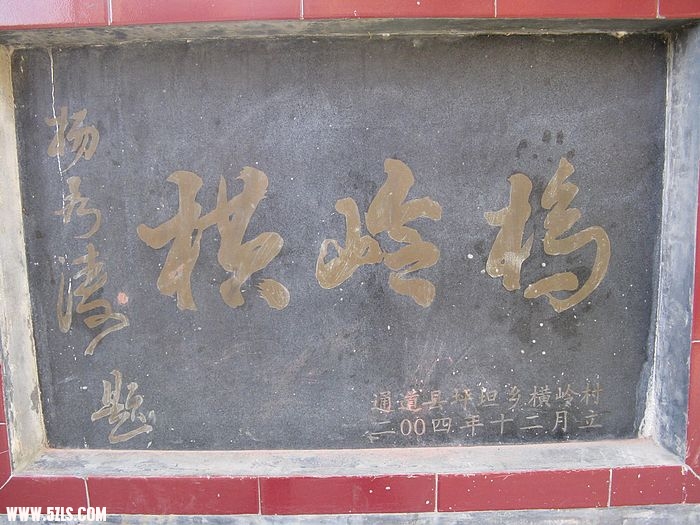 横岭桥
杨秀涛 题
通道县坪坦乡横岭村
二00四年十二月立
WWW.5ZLS.COM